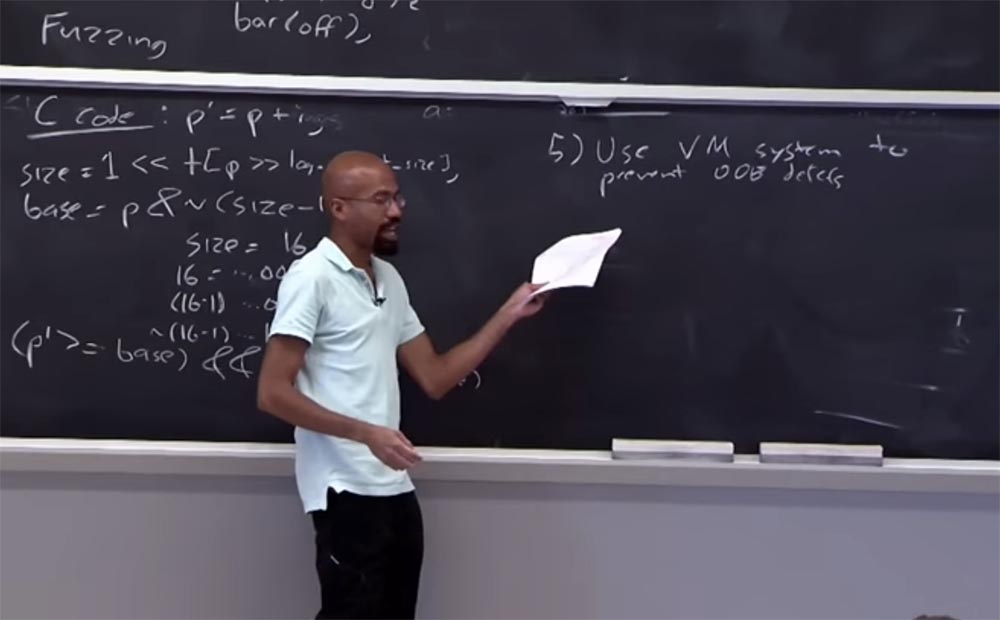 Fuzzing
bar(off),
C code: p' = p + i
a:
size = 1 << t[p >> log_ t_size],
base = p & ~(size-1
size = 16
16 = ...00
(16-1) ...0
~(16-1) ...1
(p' >= base) &&
5) Use VM system to
prevent OOB derefs